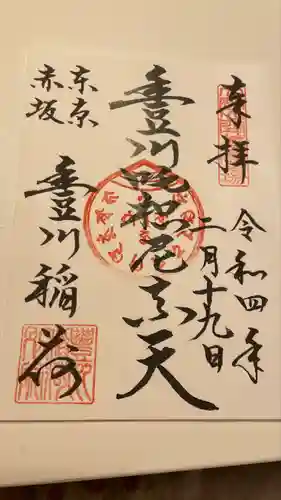 奉拝
令和四年
二月十九日
豊川吒枳尼真天
東京
赤坂
豊川稲荷